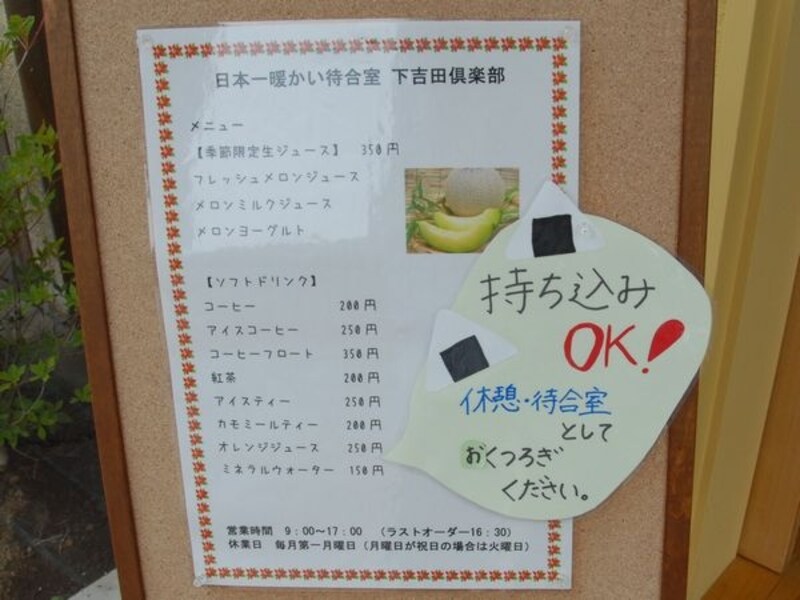 日本一暖かい待合室 下吉田倶楽部
メニュー
【季節限定生ジュース】 350円
フレッシュメロンジュース
メロンミルクジュース
メロンヨーグルト
【ソフトドリンク】
コーヒー 200円
アイスコーヒー 250円
コーヒーフロート 350円
紅茶 200円
アイスティー 250円
カモミールティー 200円
オレンジジュース 250円
ミネラルウォーター 150円
営業時間 9:00～17:00 （ラストオーダー16:30）
休業日 毎月第一月曜日（月曜日が祝日の場合は火曜日）
持ち込み
OK!
休憩・待合室
として
おくつろぎ
ください。